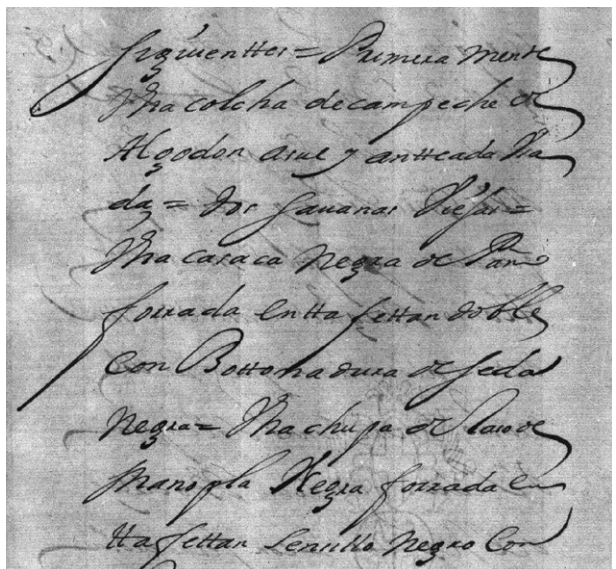 siguienttes = Primera mente
Vna colcha de campeche de
Algodon asul y antteada Vsa
da = dos sauanas Viejas =
Vna casaca negra de Paño
forrada en tta fettan doble
Con Bottonadura de seda
Negra = Vna chupa de
manopla Negra forrada en
tta fettan sensillo Negro Con